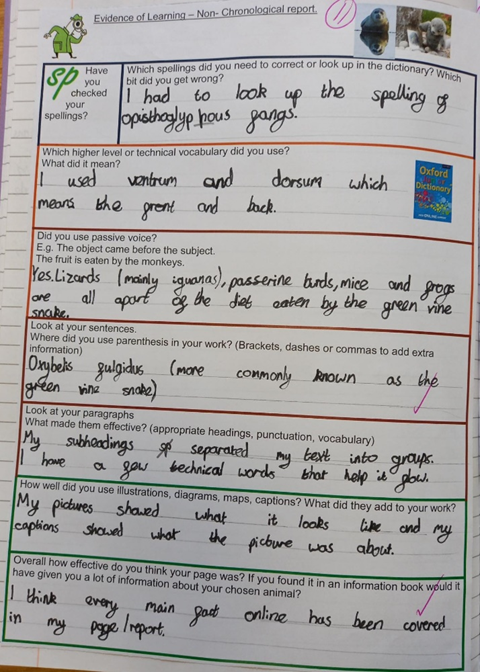 Evidence of Learning – Non- Chronological report.
11
sp
Have
you
checked
your
spellings?
Which spellings did you need to correct or look up in the dictionary? Which
bit did you get wrong?
I had to look up the spelling of
opisthoglyphous gangs.
Which higher level or technical vocabulary did you use?
What did it mean?
I used ventrum and dorsum which
means the gront and back.
Oxford
Dictionary
Did you use passive voice?
E.g. The object came before the subject.
The fruit is eaten by the monkeys.
Yes. Lizards (mainly iguanas), passerine burds, mice and grogs
are all apart of the diet eaten by the green vine
snake.
Look at your sentences.
Where did you use parenthesis in your work? (Brackets, dashes or commas to add extra
information)
Oxybelis gulgidus (more commonly known as the
green vine snake)
Look at your paragraphs
What made them effective? (appropriate headings, punctuation, vocabulary)
My subheadings sp separated my text into groups.
I have a gew technical words that help it glow.
How well did you use illustrations, diagrams, maps, captions? What did they add to your work?
My pictures showed what it looks like and my
captions showed what the picture was about.
Overall how effective do you think your page was? If you found it in an information book would it
have given you a lot of information about your chosen animal?
I think every main gact online has been covered
in my page/report.